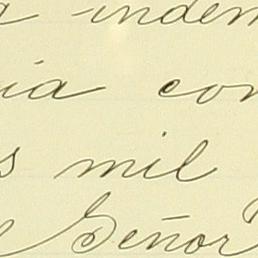 a indem
ia con
s mil
e Señor